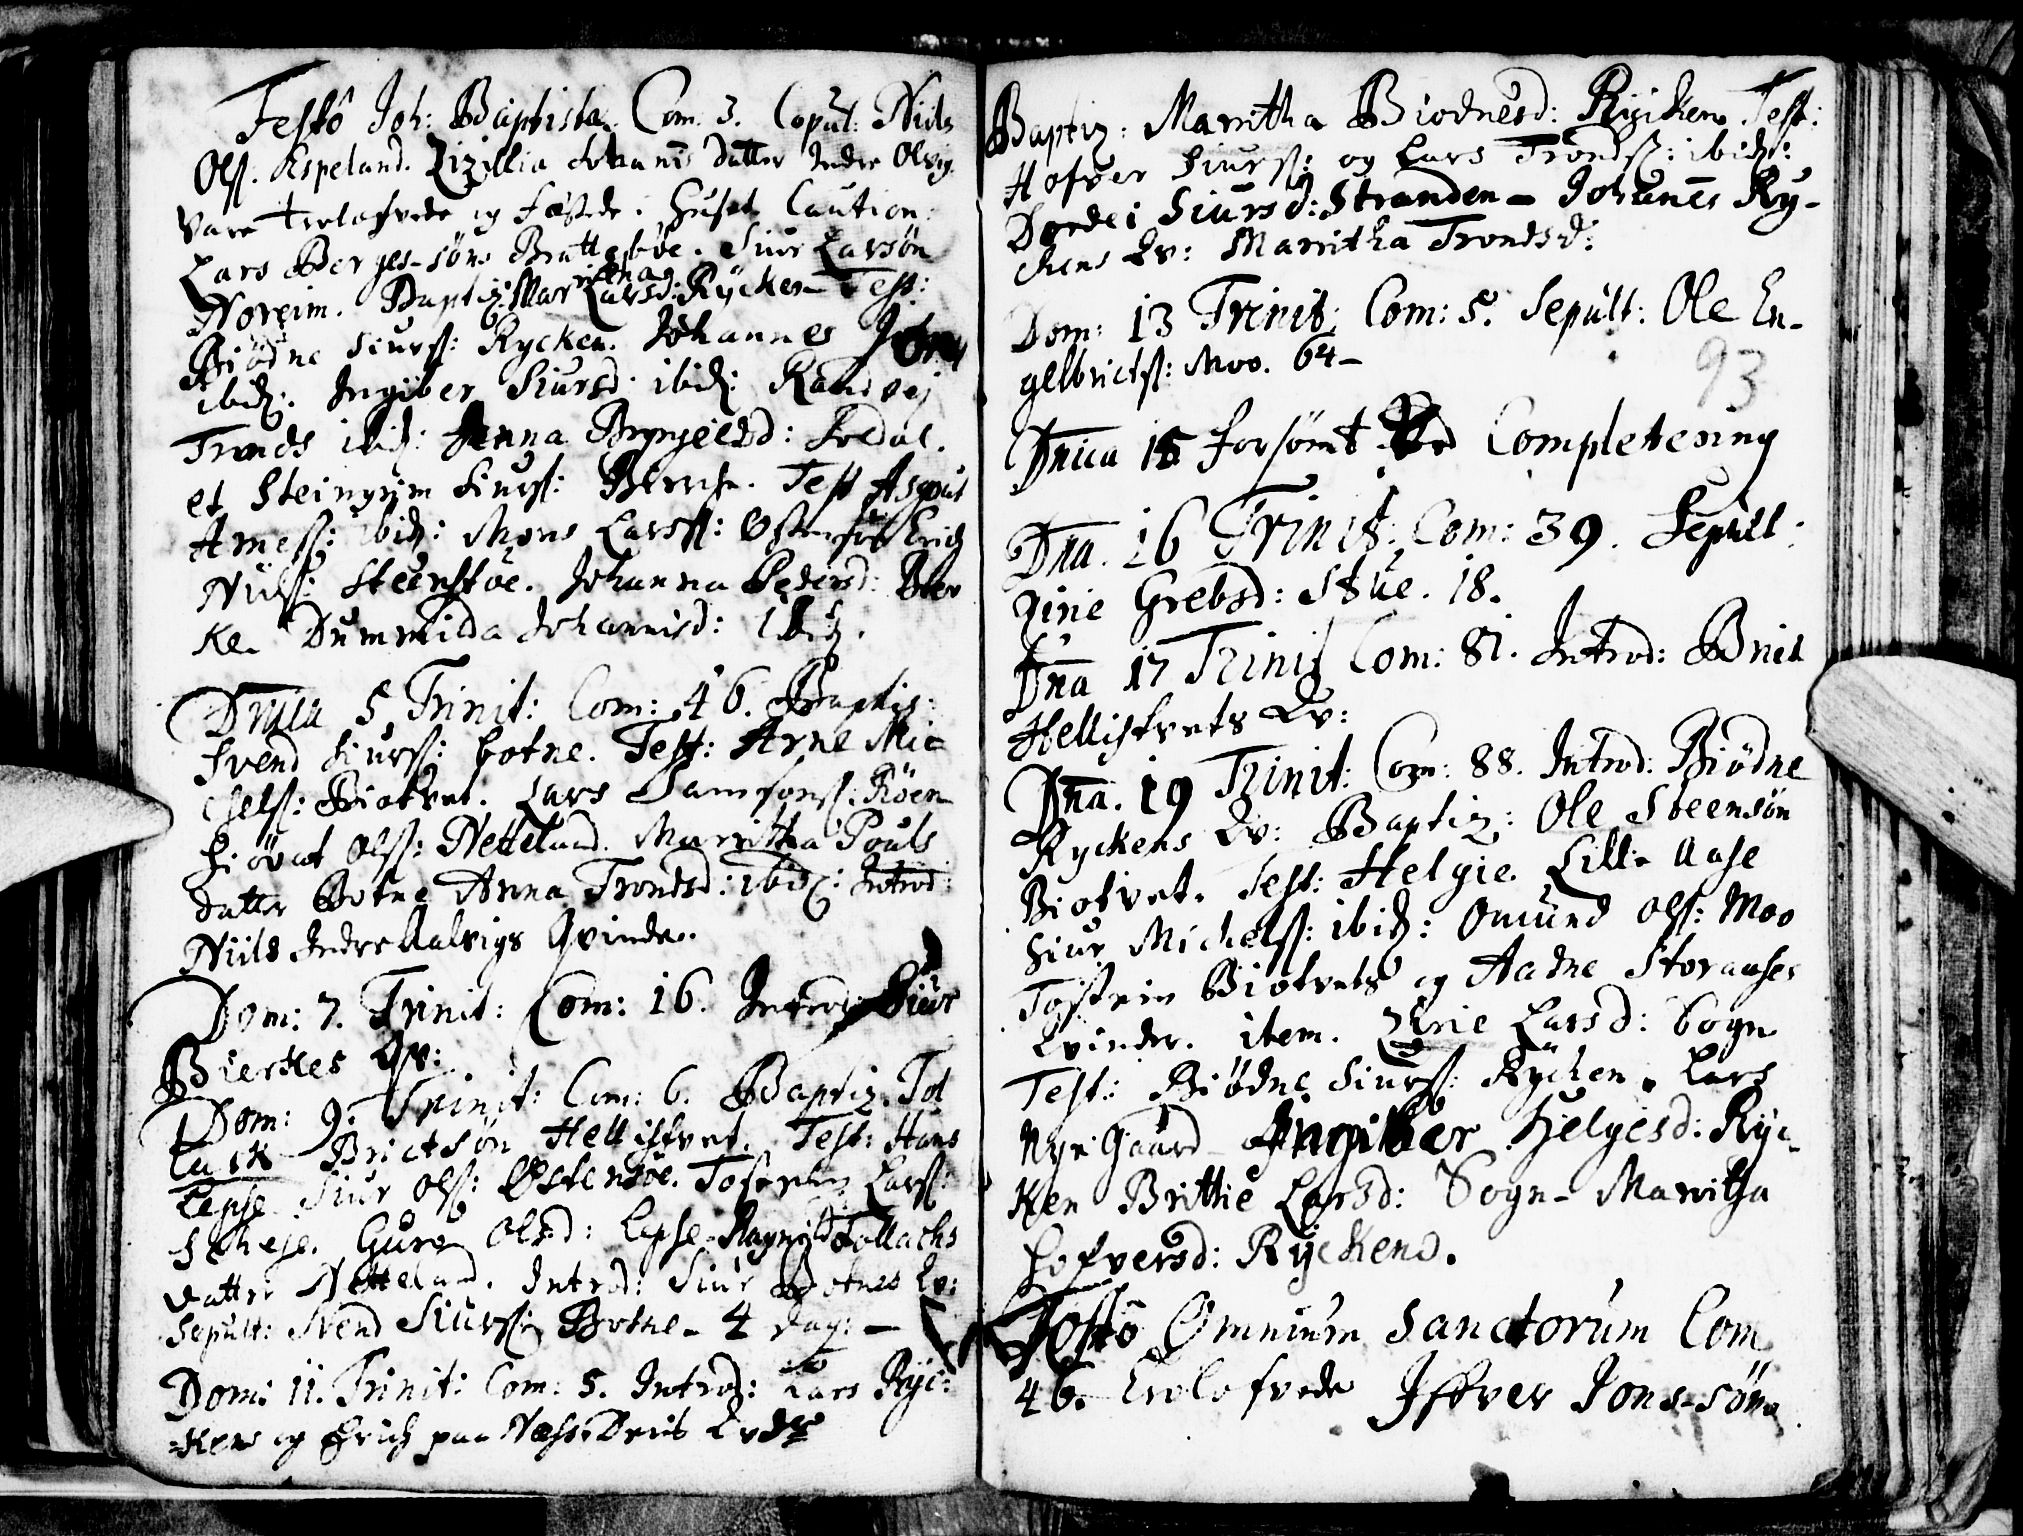 Festô Joh: Baptistæ. Com: 3. Copul: Niels
Olß. Espeland. Zizillia Johanis datter Indre Olvig.
vare trolofvede og fæstede. Caution:
Lars Berges-søn Brattestöe. Siur Larsøn
Noreim. Baptiz: Marritha Larsd: Rÿcken Test:
Biödne Siurß: Rycken. Johannes
ibid: Ingiber Siursd: ibid: Randvej
Tronds ibid: Anna Bryngeldsd:
et Steingrim Siurß: Bercke. Test Asgout
Arneß: ibid: Mons Larsß: Østensöe Erich
Nielß: Steenstöe. Johanna Pedersd: Ber
ke. Dummilda Johannisd: ibid.
Dnica 5 Trinit: Com: 46. Baptiz:
Svend Siurß: Botne. Test: Arne Mic
chelß: Biotvet. Lars Samsonß: Röen
Siövat Olß: Netteland. Marritha Pouls
datter Botne Anna Trondsd: ibid: Introd:
Niils Indre Aalvigs Qvinde.
Dom: 7. Trinit: Com: 16. Introd: Siur
Bierkes Qv:
Dom: 9. Trinit: Com: 6. Baptiz. Tol
lack Brictsøn Hellistvet. Test: Hans
Lepse Siur Olß: Østensöe. Tosten Larß:
Skeje. Guro Olsd: Lepse Ragnild Tollachs
datter Netteland. Introd: Siur Botnes Qv:
Sepult: Svend Siurß: Botne - 4 dag: -
Dom: 11. Trinit: Com: 5. Introd: Lars Ryc:
=kens og Erich paa Næss Qvdr
Baptiz: Marritha Biodnesd: Rÿcken Test:
Hofver Siurß: og Lars Trondß: ibid:
Dordei Siursd: Stranden - Johanes Ry-
ckens Qv: Marritha Trondsd:
Dom: 13 Trinit: Com: 5. Sepult: Ole En-
gelbrictß: Moo. 64 -
93
Dnica 15 forsømt Completering
Dna. 16 Trinit: Com: 39. Sepult:
Girie Grebsd: Stue. 18.
Dna 17 Trinit Com: 81. Introd: Brict
Hellistvets Qv:
Dna. 19 Trinit: Com: 88. Introd: Biödne
Ryckens Qv: Baptiz: Ole Steensøn
Biotvet. Test: Helgie. Lille Aase
Siur Michelß: ibid: Omund Olß: Moo
Tosten Biotvets og Aadne Storaases
Qvinder. item. Brie Larsd: Sogn
Test: Biödne Siurß: Rÿcken. Lars
Nye Gaard Ingiber Hjelgesd: Ryc-
ken Brittie Larsd: Sogn - Maritha
Hofversd: Ryckend.
Festô Omnium Sanctorum Com
46. Trolofvede Ifver Jons-søn